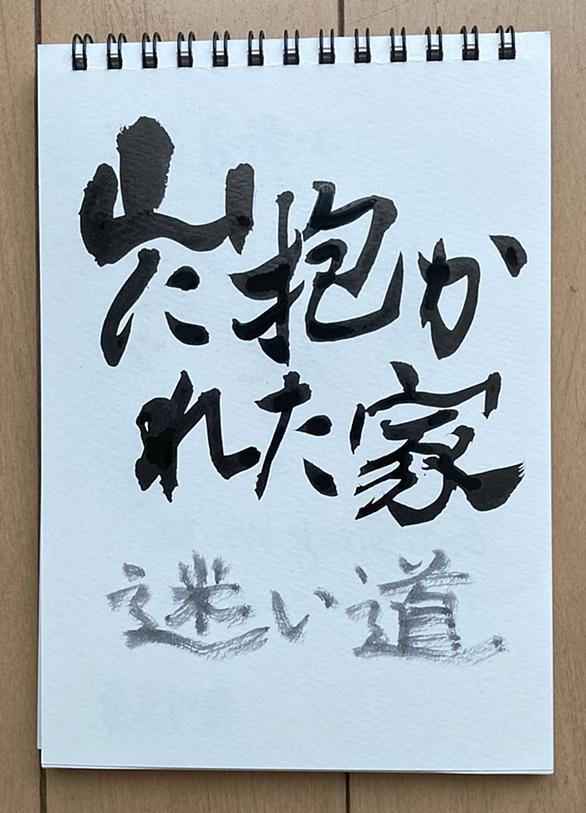 山に抱か
れた家
迷い道